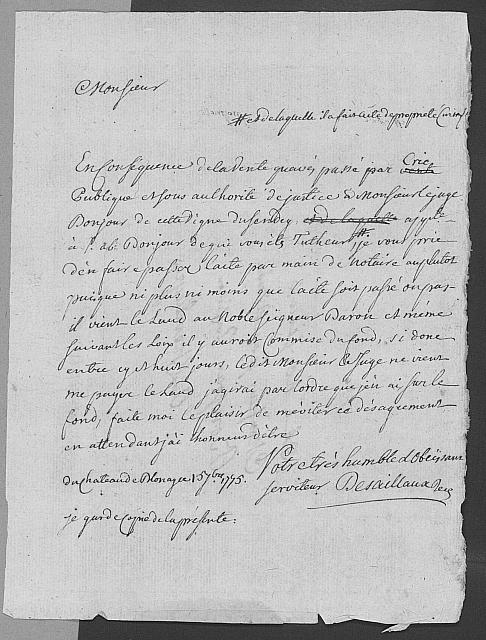 Monsieur
# et de laquelle il a fait
En Conséquence de la Vente qu'avés passé par Crie
Publique et sous authorité de justice à Monsieur le juge
Bonjour de cette digne du
à Sr. ab. Bonjour de qui vous êtes Tutheur #, je vous prie
d'en faire passer l'acte par main de Notaire au plutot
puisque ni plus ni moins que l'acte soit passé ou pas
il vient le Laud au Noble Seigneur Baron et même
suivant les Loix il y auroit Commise du fond, si donc
entre cy et huit jours, ledit Monsieur le Juge ne vient
me payer le Laud j'agirai par l'ordre que j'en ai sur le
fond, faite moi le plaisir de m'eviter ce désagrement
en attendant j'ai l'honneur d'être
Votre très humble et Obéissant
du Château de Blonay ce 15 7bre 1775.
serviteur
je garde Copie de la présente.